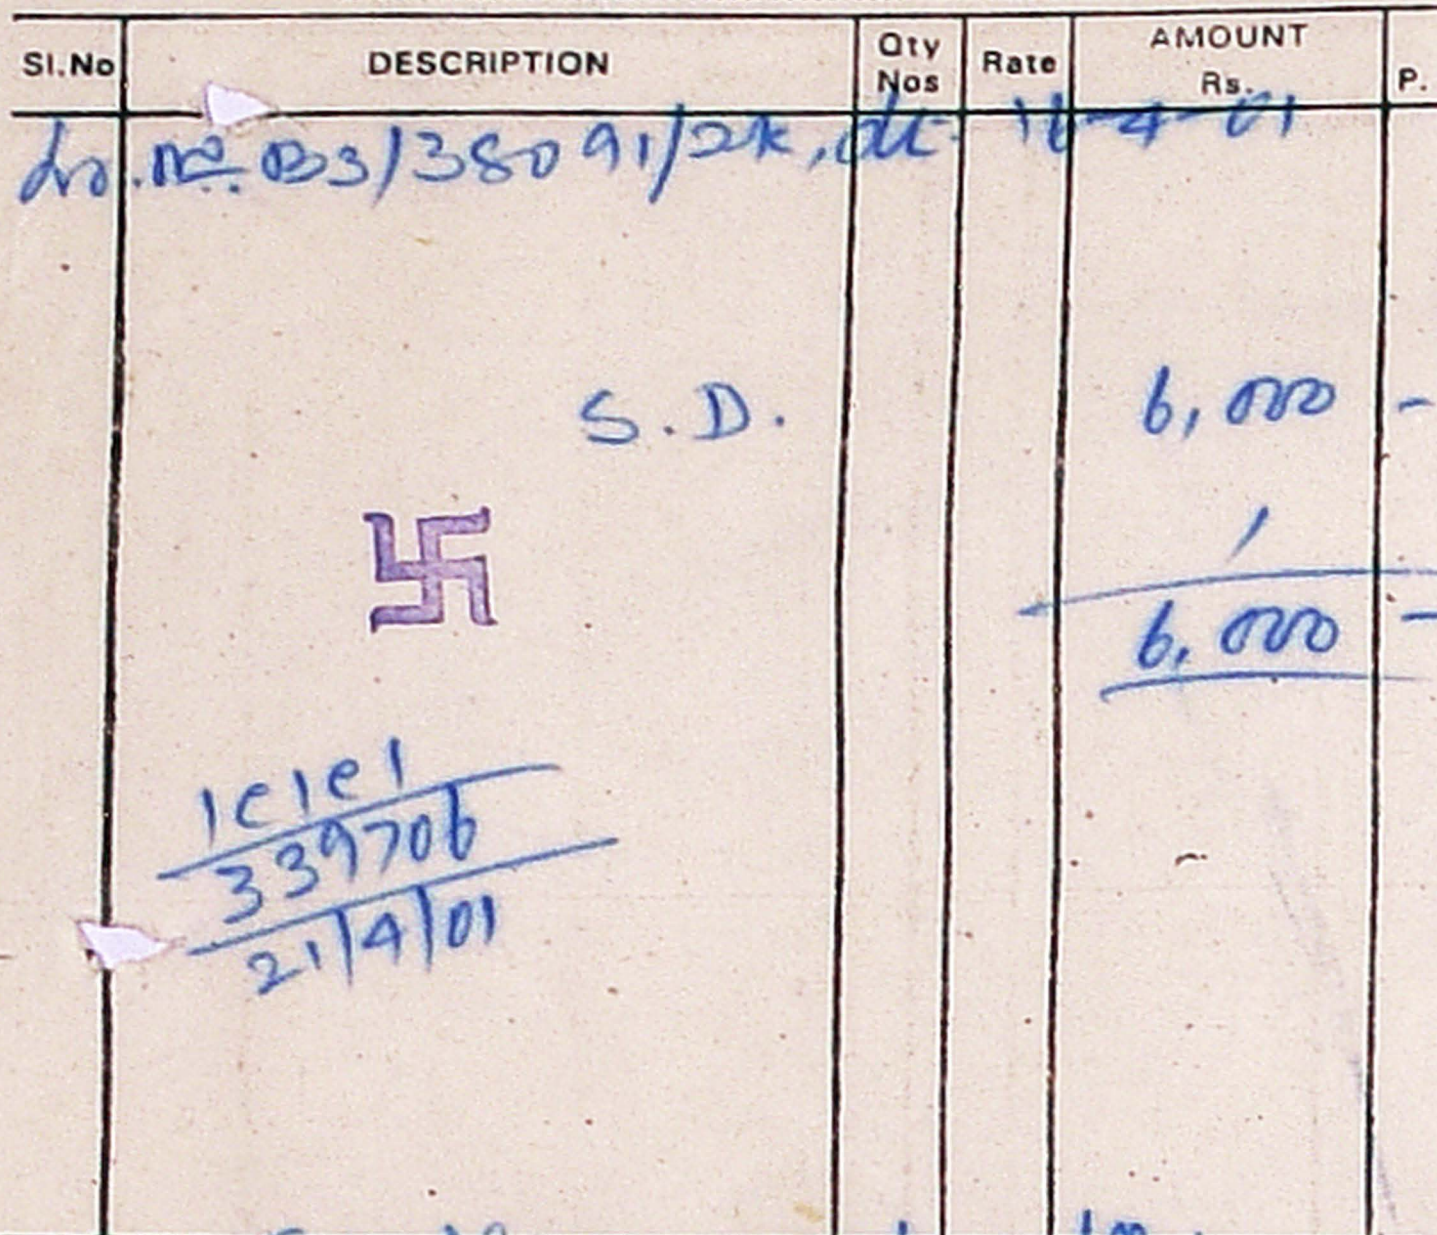 Sl.No DESCRIPTION Qty Nos Rate AMOUNT Rs. P.
Lr. No. B3/38091/2k, dt. 16-4-01
S.D. 6,000 -
6,000 -
ICICI
339706
21/4/01